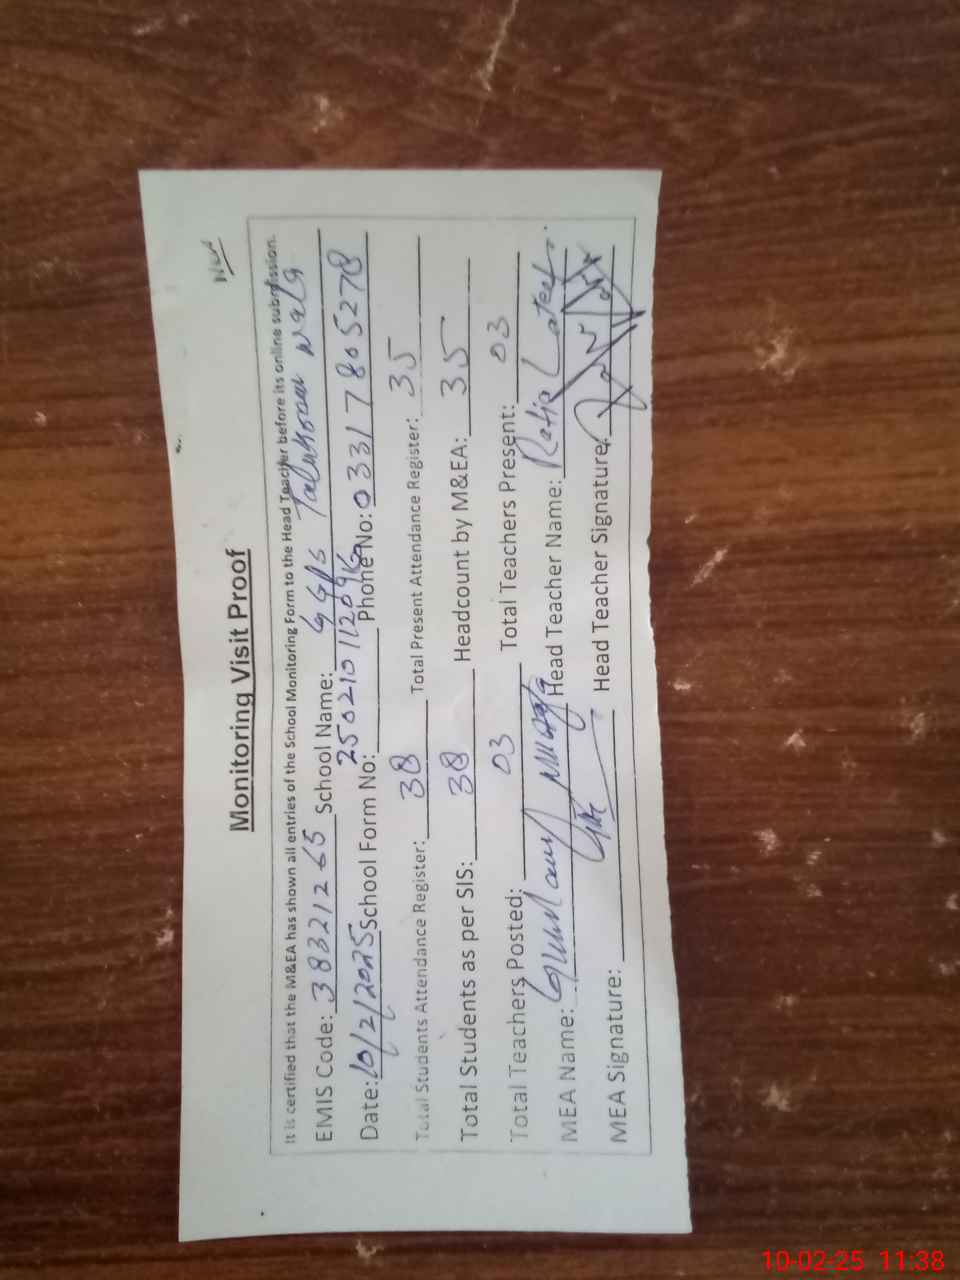 New
Monitoring Visit Proof
It is certified that the M&EA has shown all entries of the School Monitoring Form to the Head Teacher before its online submission.
EMIS Code: 38321265 School Name: GGPS wala
Date: 10/2/2025 School Form No: Phone No: 03317805278
Total Students Attendance Register: 38 Total Present Attendance Register: 35
Total Students as per SIS: 38 Headcount by M&EA: 35
Total Teachers Posted: 03 Total Teachers Present: 03
MEA Name: Head Teacher Name: Lateef
MEA Signature: Head Teacher Signature:
10-02-25 11:38